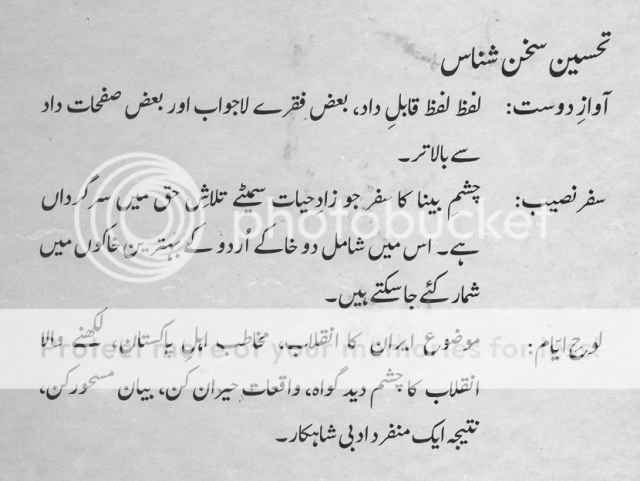 تحسین سخن شناس
آوازِ دوست: لفظ لفظ قابلِ داد، بعض فقرے لاجواب اور بعض صفحات داد
سے بالاتر۔
سفر نصیب: چشمِ بینا کا سفر جو زادِ حیات سمیٹے تلاشِ حق میں سرگرداں
ہے۔ اس میں شامل دو خاکے اُردو کے بہترین خاکوں میں
شمار کئے جا سکتے ہیں۔
لوحِ ایّام: موضوع ایران کا انقلاب، مخاطب اہلِ پاکستان، لکھنے والا
انقلاب کا چشم دید گواہ، واقعات حیران کن، بیان مسحور کن،
نتیجہ ایک منفرد ادبی شاہکار۔
photobucket
Protect more of your memories for